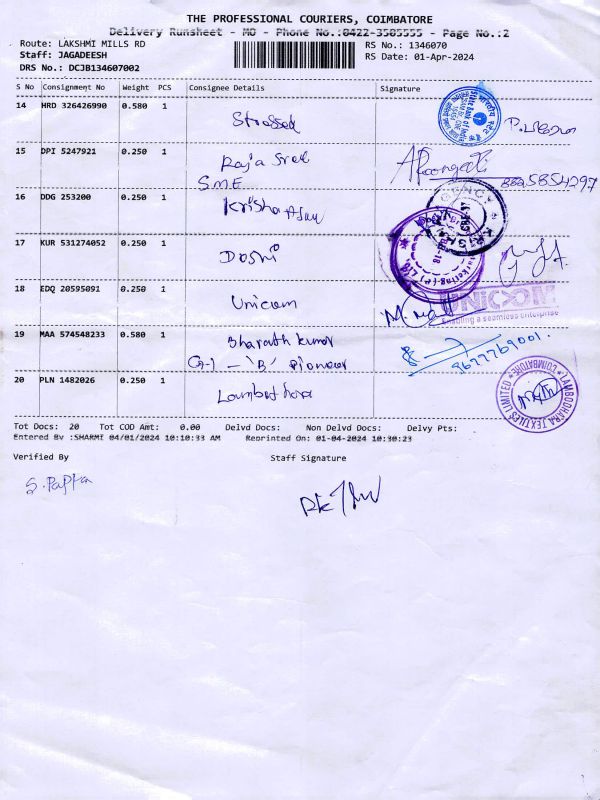 THE PROFESSIONAL COURIERS, COIMBATORE
Delivery Runsheet - MO - Phone No.:0422-3505555 - Page No.:2
Route: LAKSHMI MILLS RD
RS No.: 1346070
Staff: JAGADEESH
RS Date: 01-Apr-2024
DRS No.: DCJB134607002
S No Consignment No Weight PCS Consignee Details Signature
14 HRD 326426990 0.580 1 Stressed
15 DPI 5247921 0.250 1 Raja Sree
8825854297
S.M.E
16 DDG 253200 0.250 1 Krishna
17 KUR 531274052 0.250 1 Doshi
18 EDQ 20595091 0.250 1 Unicom
UNICOM
Enabling a seamless enterprise
19 MAA 574548233 0.580 1 Bharath kumar
G-1 - 'B' Pioneer
9677769001.
20 PLN 1482026 0.250 1
LAMBODHARA TEXTILES LIMITED
COIMBATORE
Tot Docs: 20 Tot COD Amt: 0.00 Delvd Docs: Non Delvd Docs: Delvy Pts:
Entered By :SHARMI 04/01/2024 10:10:33 AM Reprinted On: 01-04-2024 10:30:23
Verified By Staff Signature
S. Pappa